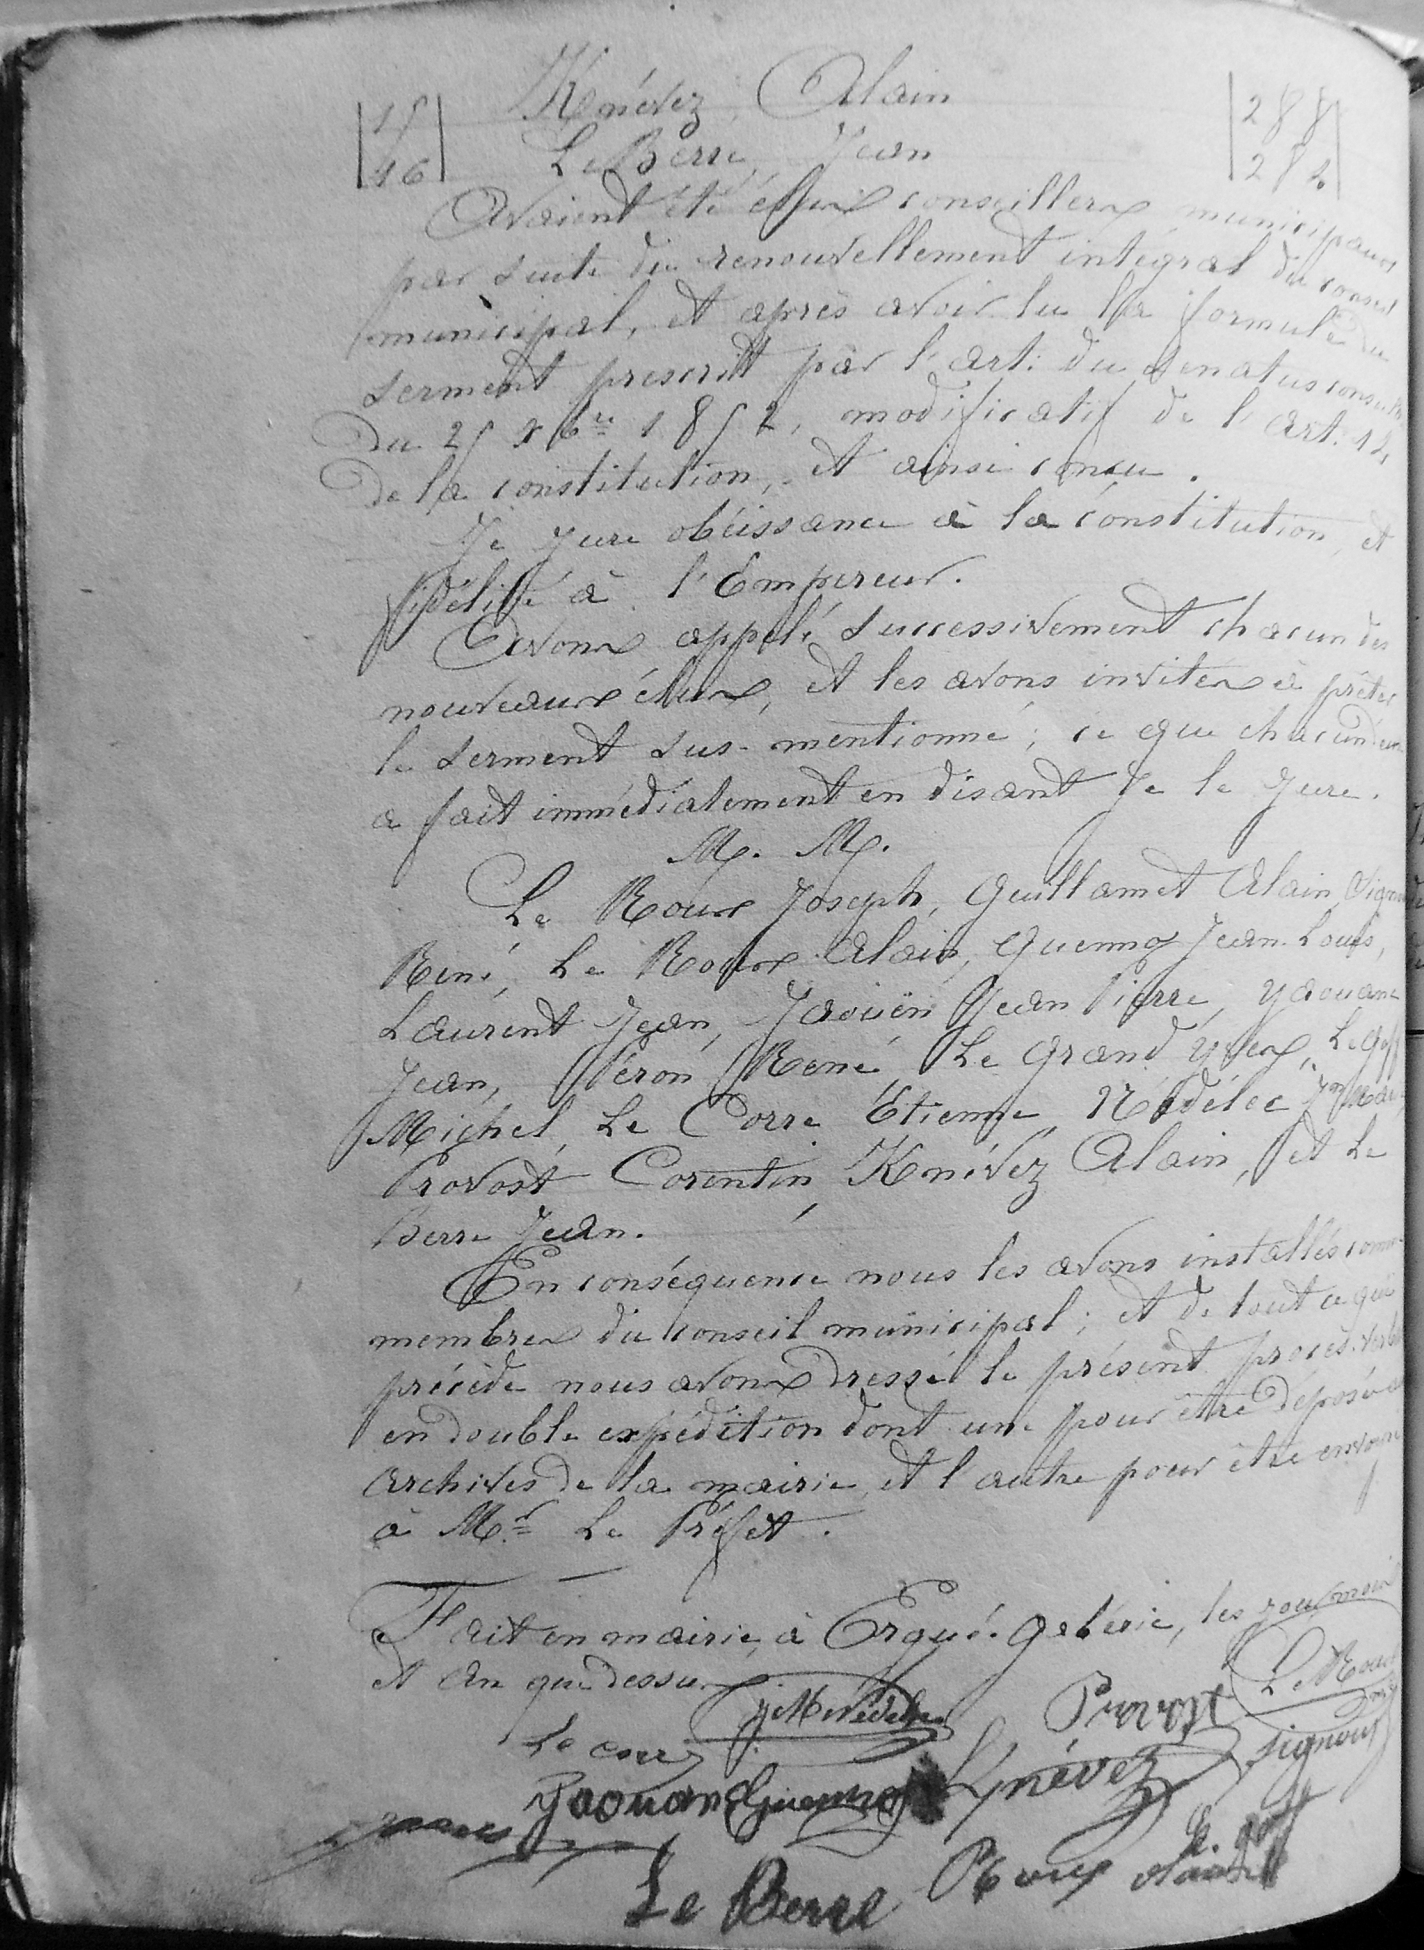 15 Knévez Alain 288
16 Le Berre Jean 282
Avaient été élus conseillers municipaux
par suite du renouvellement intégral du conseil
municipal, et après avoir lu la formule du
serment prescrit par l'art: du senatus consulte
du 25 Xbre 1852, modificatif de l'art. 14
de la constitution, et ainsi concu.
Je jure obéissance à la constitution, et
fidélité à l'Empereur.
Avons appelé successivement chacun des
nouveaux élus, et les avons invités à prêter
le serment sus-mentionné; ce que chacun d'eux
a fait immédiatement en disant Je le jure.
M. M.
Le Roux Joseph, Guillamet Alain, Signour
René, Le Roux Alain, Quennog Jean-Louis,
Laurent Jean, Jaouën Jean Pierre, Yaouanc
Jean, Péron René, Le Grand Yves, Le Goff
Michel, Le Corre Etienne, Nédélec Jn Marie
Provost Corentin, Knévez Alain, et Le
Berre Jean.
En conséquence nous les avons installés comme
membres du conseil municipal; et de tout ce qui
précède nous avons dressé le présent procès-verbal
en double expédition dont une pour être déposée aux
archives de la mairie, et l'autre pour être envoyée
à Mr Le Préfet.
Fait en mairie, à Ergué-Gabéric, les jour, mois
et an que dessus.
JM Nédélec Provost Le Roux
Le corre Knévez Signour
Yaouanc Guennog
Le Berre Roux alain Le goff